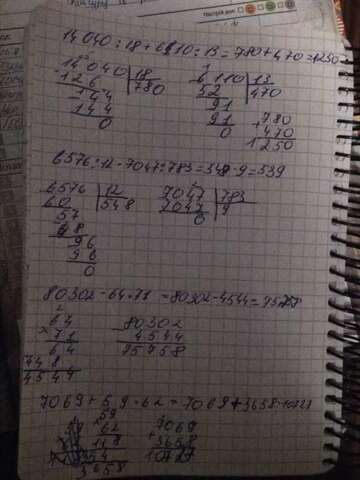 14 040 : 18 + 6110 : 13 = 780 + 470 = 1250
14040 | 18   6110 | 13
126   780   52   470
144   91
144   91   780
0   0   + 470
1250
6576 : 12 - 7047 : 783 = 548 - 9 = 539
6576 | 12   7047 | 783
60   548   7047   9
57   0
48
96
96
0
80302 - 64 · 71 = 80302 - 4544 = 75758
64   80302
× 71   4544
64   75758
448
4544
7069 + 59 · 62 = 7069 + 3658 = 10727
59
× 62   7069
118   + 3658
354   10727
3658